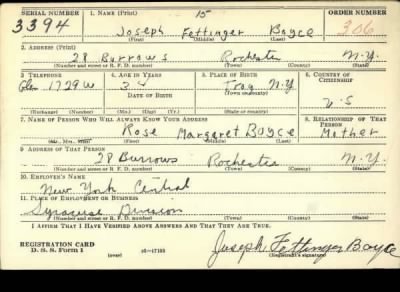 SERIAL NUMBER 1. NAME (Print) ORDER NUMBER
3394 Joseph Fettinger Boyce 306
(First) (Middle) (Last)
2. ADDRESS (Print)
28 Burrows Rochester N.Y.
(Number and street or R. F. D. number) (Town) (County) (State)
3. TELEPHONE 4. AGE IN YEARS 5. PLACE OF BIRTH 6. COUNTRY OF CITIZENSHIP
Glen 1729W Troy N.Y.
DATE OF BIRTH (Town or county)
U.S.
(Exchange) (Number) (Mo.) (Day) (Yr.) (State or country)
7. NAME OF PERSON WHO WILL ALWAYS KNOW YOUR ADDRESS 8. RELATIONSHIP OF THAT PERSON
Rose Margaret Boyce Mother
(Mr., Mrs., Miss) (First) (Middle) (Last)
9. ADDRESS OF THAT PERSON
28 Burrows Rochester N.Y.
(Number and street or R. F. D. number) (Town) (County) (State)
10. EMPLOYER'S NAME
New York Central
11. PLACE OF EMPLOYMENT OR BUSINESS
Syracuse Division
(Number and street or R. F. D. number) (Town) (County) (State)
I AFFIRM THAT I HAVE VERIFIED ABOVE ANSWERS AND THAT THEY ARE TRUE.
REGISTRATION CARD
D. S. S. Form 1 (over) 16—17105
Joseph Fettinger Boyce
(Registrant's signature)